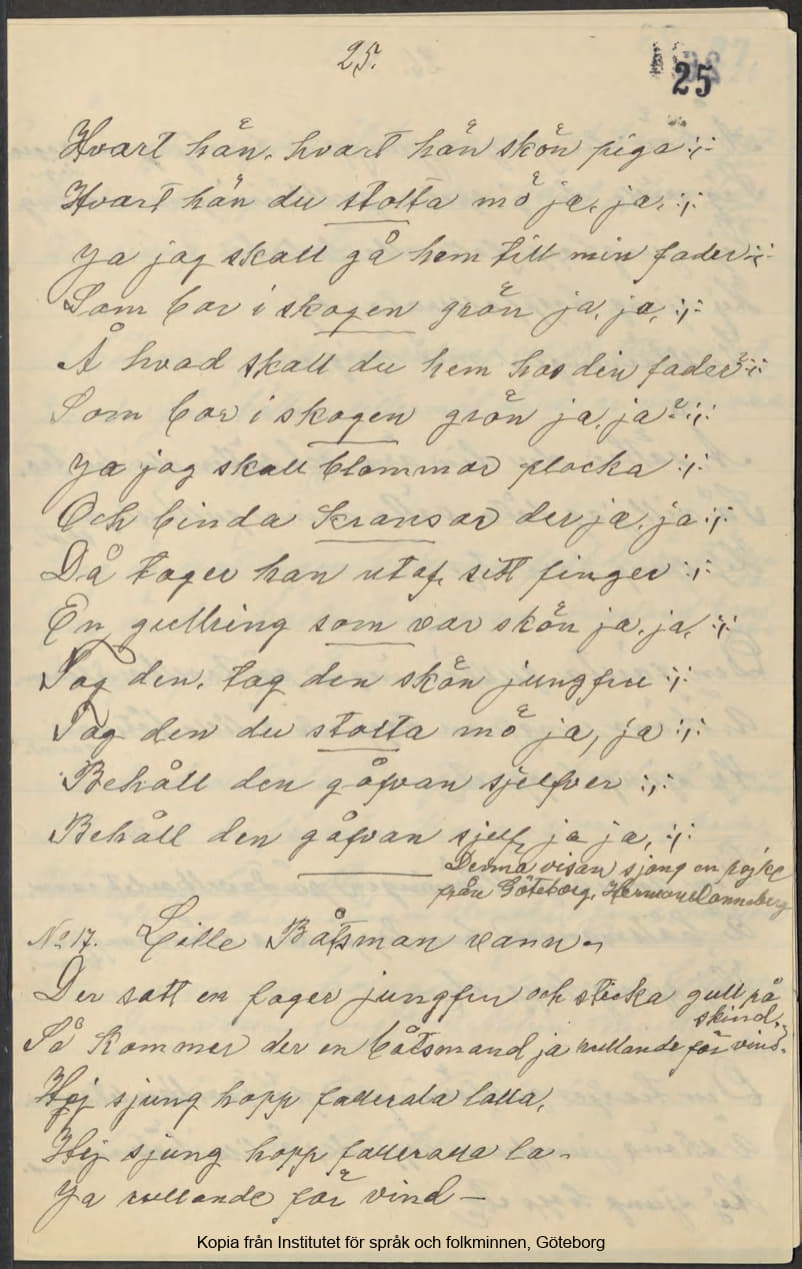 25.
25
Hvart hän, hvart hän skön piga :,:
Hvart hän du stolta mö ja, ja, :,:
Ja jag skall gå hem till min fader :,:
Som bor i skogen grön ja, ja, :,:
Å hvad skall du hem hos din fader? :,:
Som bor i skogen grön ja, ja? :,:
Ja jag skall blommor plocka :,:
Och binda kransar der ja, ja :,:
Då tager han utaf sitt finger :,:
En gullring som var skön ja, ja, :,:
Tag den, tag den skön jungfru :,:
Tag den du stolta mö ja, ja :,:
Behåll den gåfvan sjelfver :,:
Behåll den gåfvan sjelf, ja ja, :,:
Denna visan sjöng en pojke
från Göteborg, Herman
No 17. Lille Båtsman vann.
Der satt en fager jungfru och sticka gull på
skind,
Så kommer der en båtsmand ja rullande för vind.
Hej sjung hopp fallerala lalla,
Hej sjung hopp falleralla la.
Ja rullande för vind —
Kopia från Institutet för språk och folkminnen, Göteborg